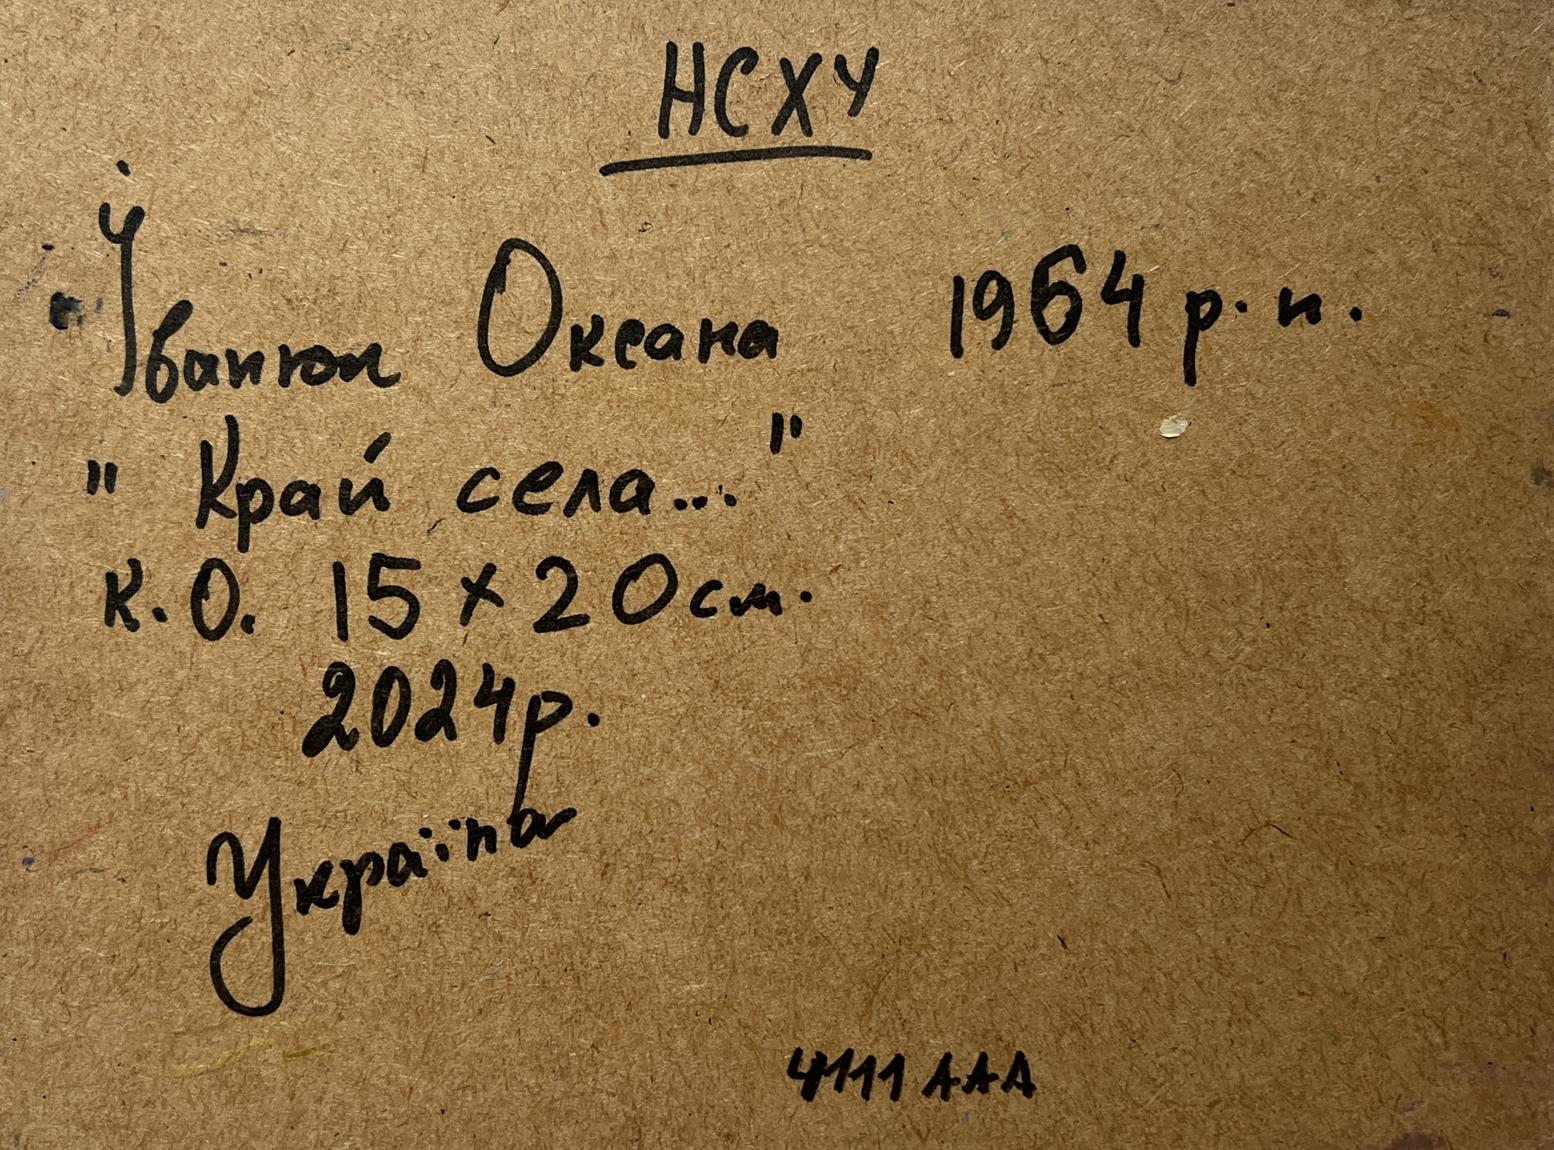 НСХУ
Іванюк Оксана 1964 р. н.
" Край села... "
к. О. 15 x 20 см.
2024 р.
Україна
4111 AAA